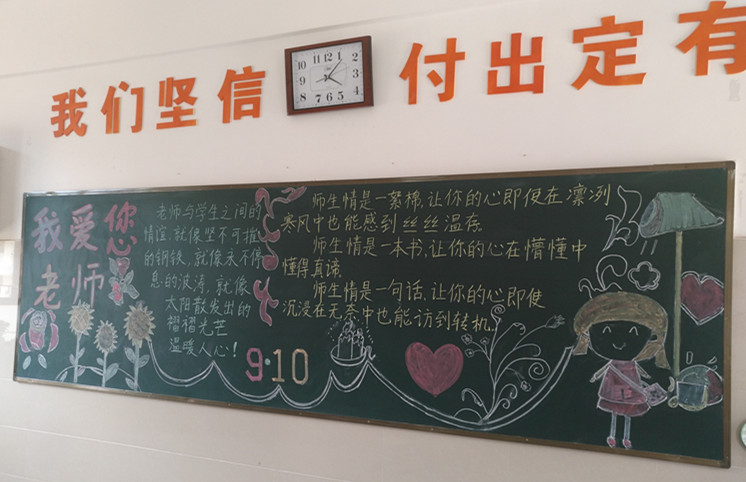 我们坚信 付出定有
我爱您
老师
老师与学生之间的
情谊,就像坚不可摧
的钢铁,就像永不停
息的波涛,就像
太阳散发出的
褶褶光芒
温暖人心!
师生情是一絮棉,让你的心即使在凛冽
寒风中也能感到丝丝温存.
师生情是一本书,让你的心在懵懂中
懂得真谛.
师生情是一句话,让你的心即使
沉浸在无奈中也能访到转机.
9·10